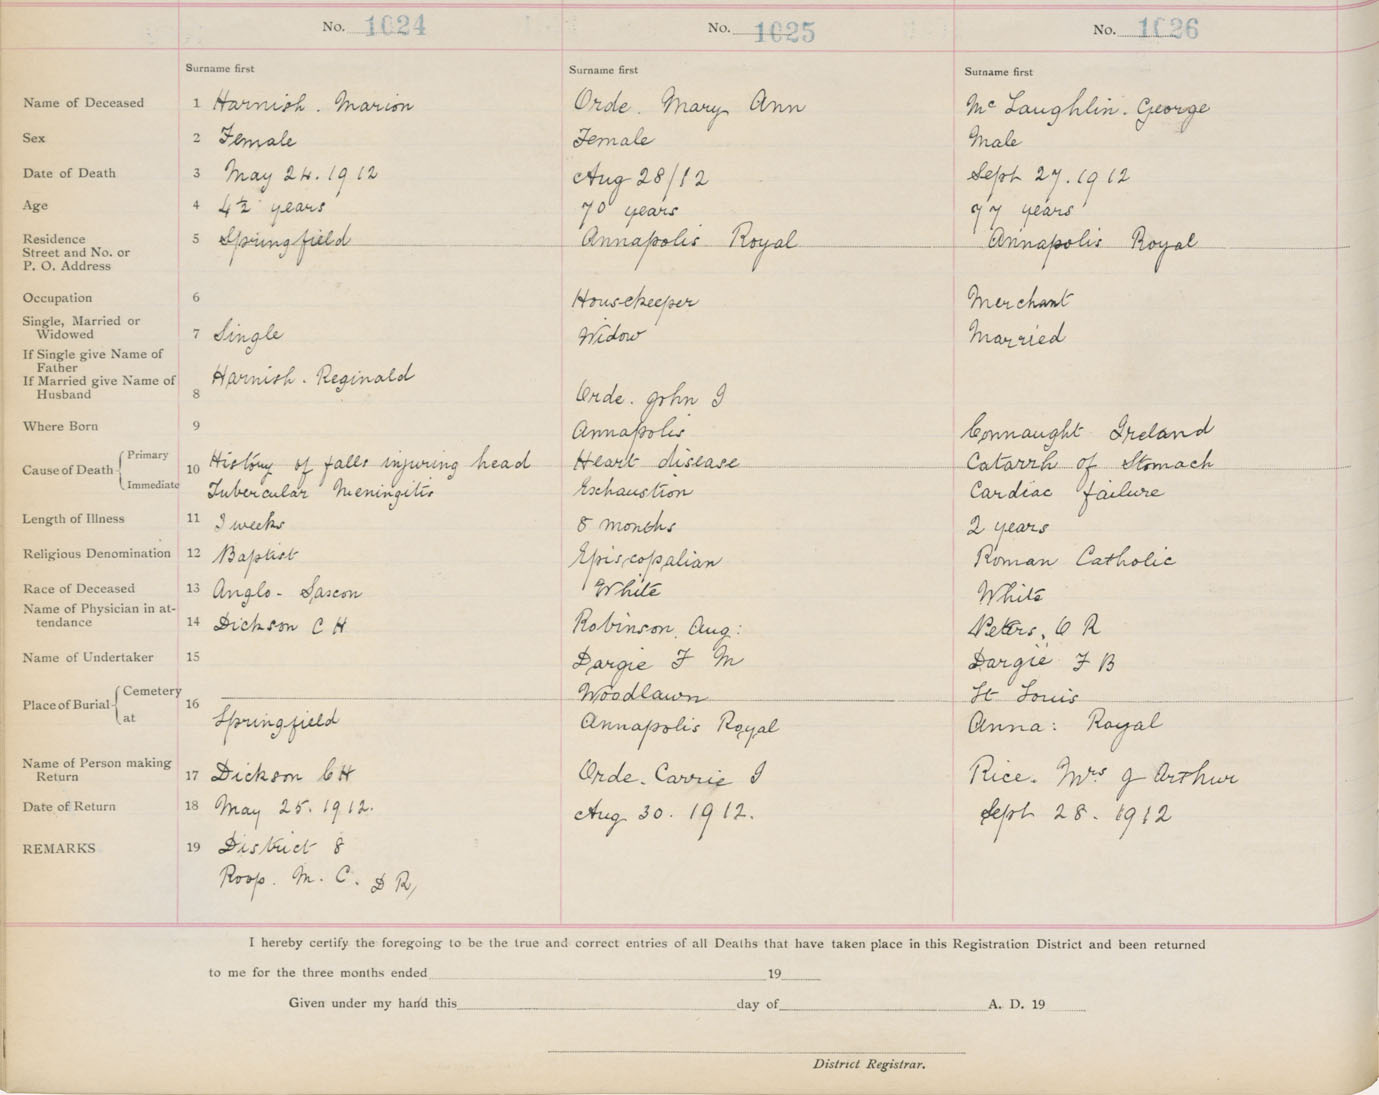 No. 1024 No. 1025 No. 1026
Surname first Surname first Surname first
Name of Deceased 1 Harnish. Marion Orde. Mary Ann Mc Laughlin. George
Sex 2 Female Female Male
Date of Death 3 May 24. 1912 Aug 28/12 Sept 27. 1912
Age 4 4½ years 70 years 77 years
Residence 5 Springfield Annapolis Royal Annapolis Royal
Street and No. or
P. O. Address
Occupation 6 Housekeeper Merchant
Single, Married or
Widowed 7 Single Widow Married
If Single give Name of
Father
Harnish. Reginald
If Married give Name of
Husband 8 Orde. John I
Where Born 9 Annapolis Connaught Ireland
Cause of Death Primary 10 History of falls injuring head Heart disease Catarrh of Stomach
Immediate Tubercular Meningitis Exhaustion Cardiac failure
Length of Illness 11 3 weeks 8 months 2 years
Religious Denomination 12 Baptist Episcopalian Roman Catholic
Race of Deceased 13 Anglo-Saxcon White White
Name of Physician in at-
tendance 14 Dickson C H Robinson. Aug: Peters. O R
Name of Undertaker 15 Dargie F M Dargie F B
Place of Burial Cemetery 16 Woodlawn St Louis
at Springfield Annapolis Royal Anna: Royal
Name of Person making
Return 17 Dickson C H Orde. Carrie I Rice. Mrs J Arthur
Date of Return 18 May 25. 1912. Aug 30. 1912. Sept 28. 1912
REMARKS 19 District 8
Roop. M. C. D R,
I hereby certify the foregoing to be the true and correct entries of all Deaths that have taken place in this Registration District and been returned
to me for the three months ended 19
Given under my hand this day of A. D. 19
District Registrar.